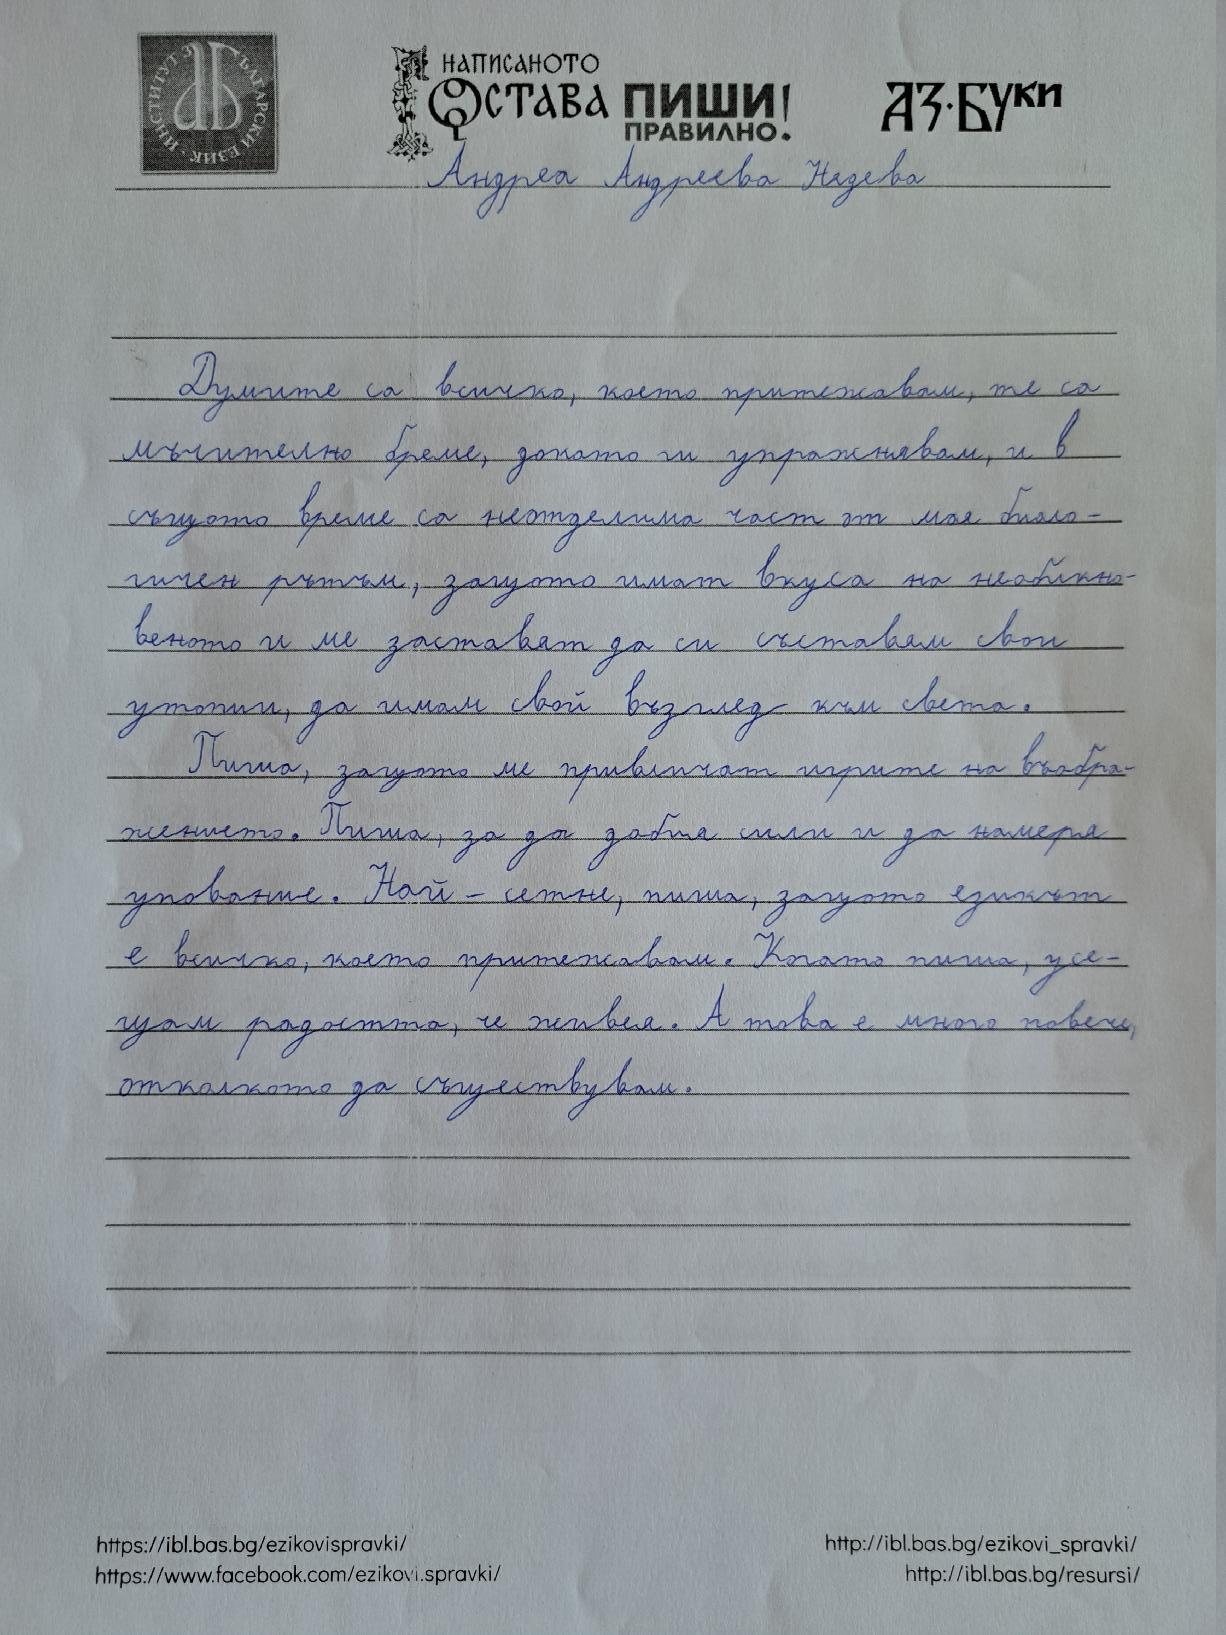 ИНСТИТУТ ЗА БЪЛГАРСКИ ЕЗИК
НАПИСАНОТО
ОСТАВА ПИШИ!
ПРАВИЛНО.
АЗ·БУКИ
Андреа Андреева Надева
Думите са всичко, което притежавам, те са
мъчително бреме, докато ги упражнявам, и в
същото време са неотделима част от моя биоло-
гичен ритъм, защото имат вкуса на необикно-
веното и ме заставят да си съставям свои
утопии, да имам свой възглед към света.
Пиша, защото ме привличат игрите на въобра-
жението. Пиша, за да добия сили и да намеря
упование. Най-сетне, пиша, защото езикът
е всичко, което притежавам. Когато пиша, усе-
щам радостта, че живея. А това е много повече,
отколкото да съществувам.
https://ibl.bas.bg/ezikovispravki/ http://ibl.bas.bg/ezikovi_spravki/
https://www.facebook.com/ezikovi.spravki/ http://ibl.bas.bg/resursi/